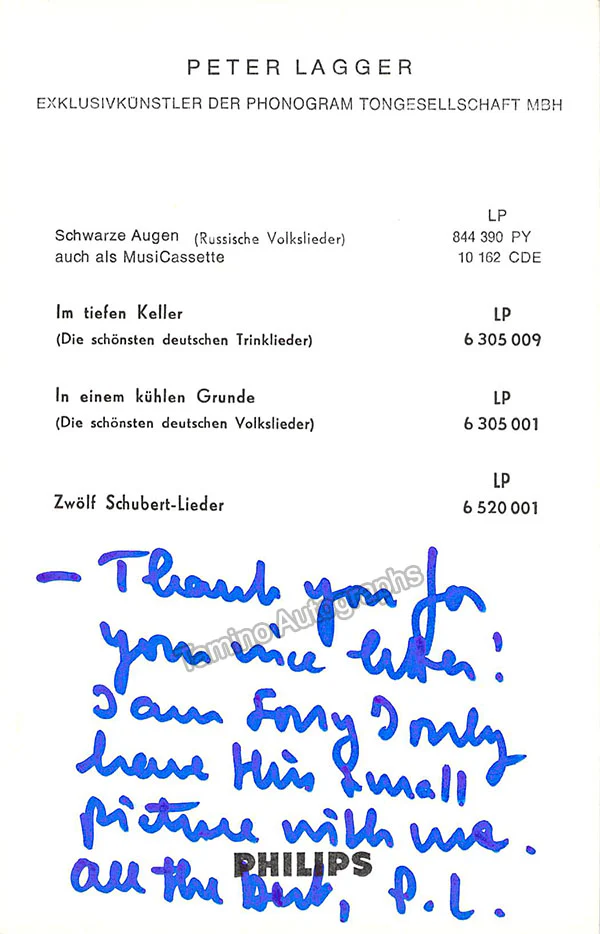 PETER LAGGER
EXKLUSIVKÜNSTLER DER PHONOGRAM TONGESELLSCHAFT MBH
LP
Schwarze Augen (Russische Volkslieder) 844 390 PY
auch als MusiCassette 10 162 CDE
Im tiefen Keller LP
(Die schönsten deutschen Trinklieder) 6 305 009
In einem kühlen Grunde LP
(Die schönsten deutschen Volkslieder) 6 305 001
LP
Zwölf Schubert-Lieder 6 520 001
– Thank you for
your nice letter!
I am sorry I only
have this small
picture with me.
PHILIPS
all the best, P.L.
Tamino Autographs